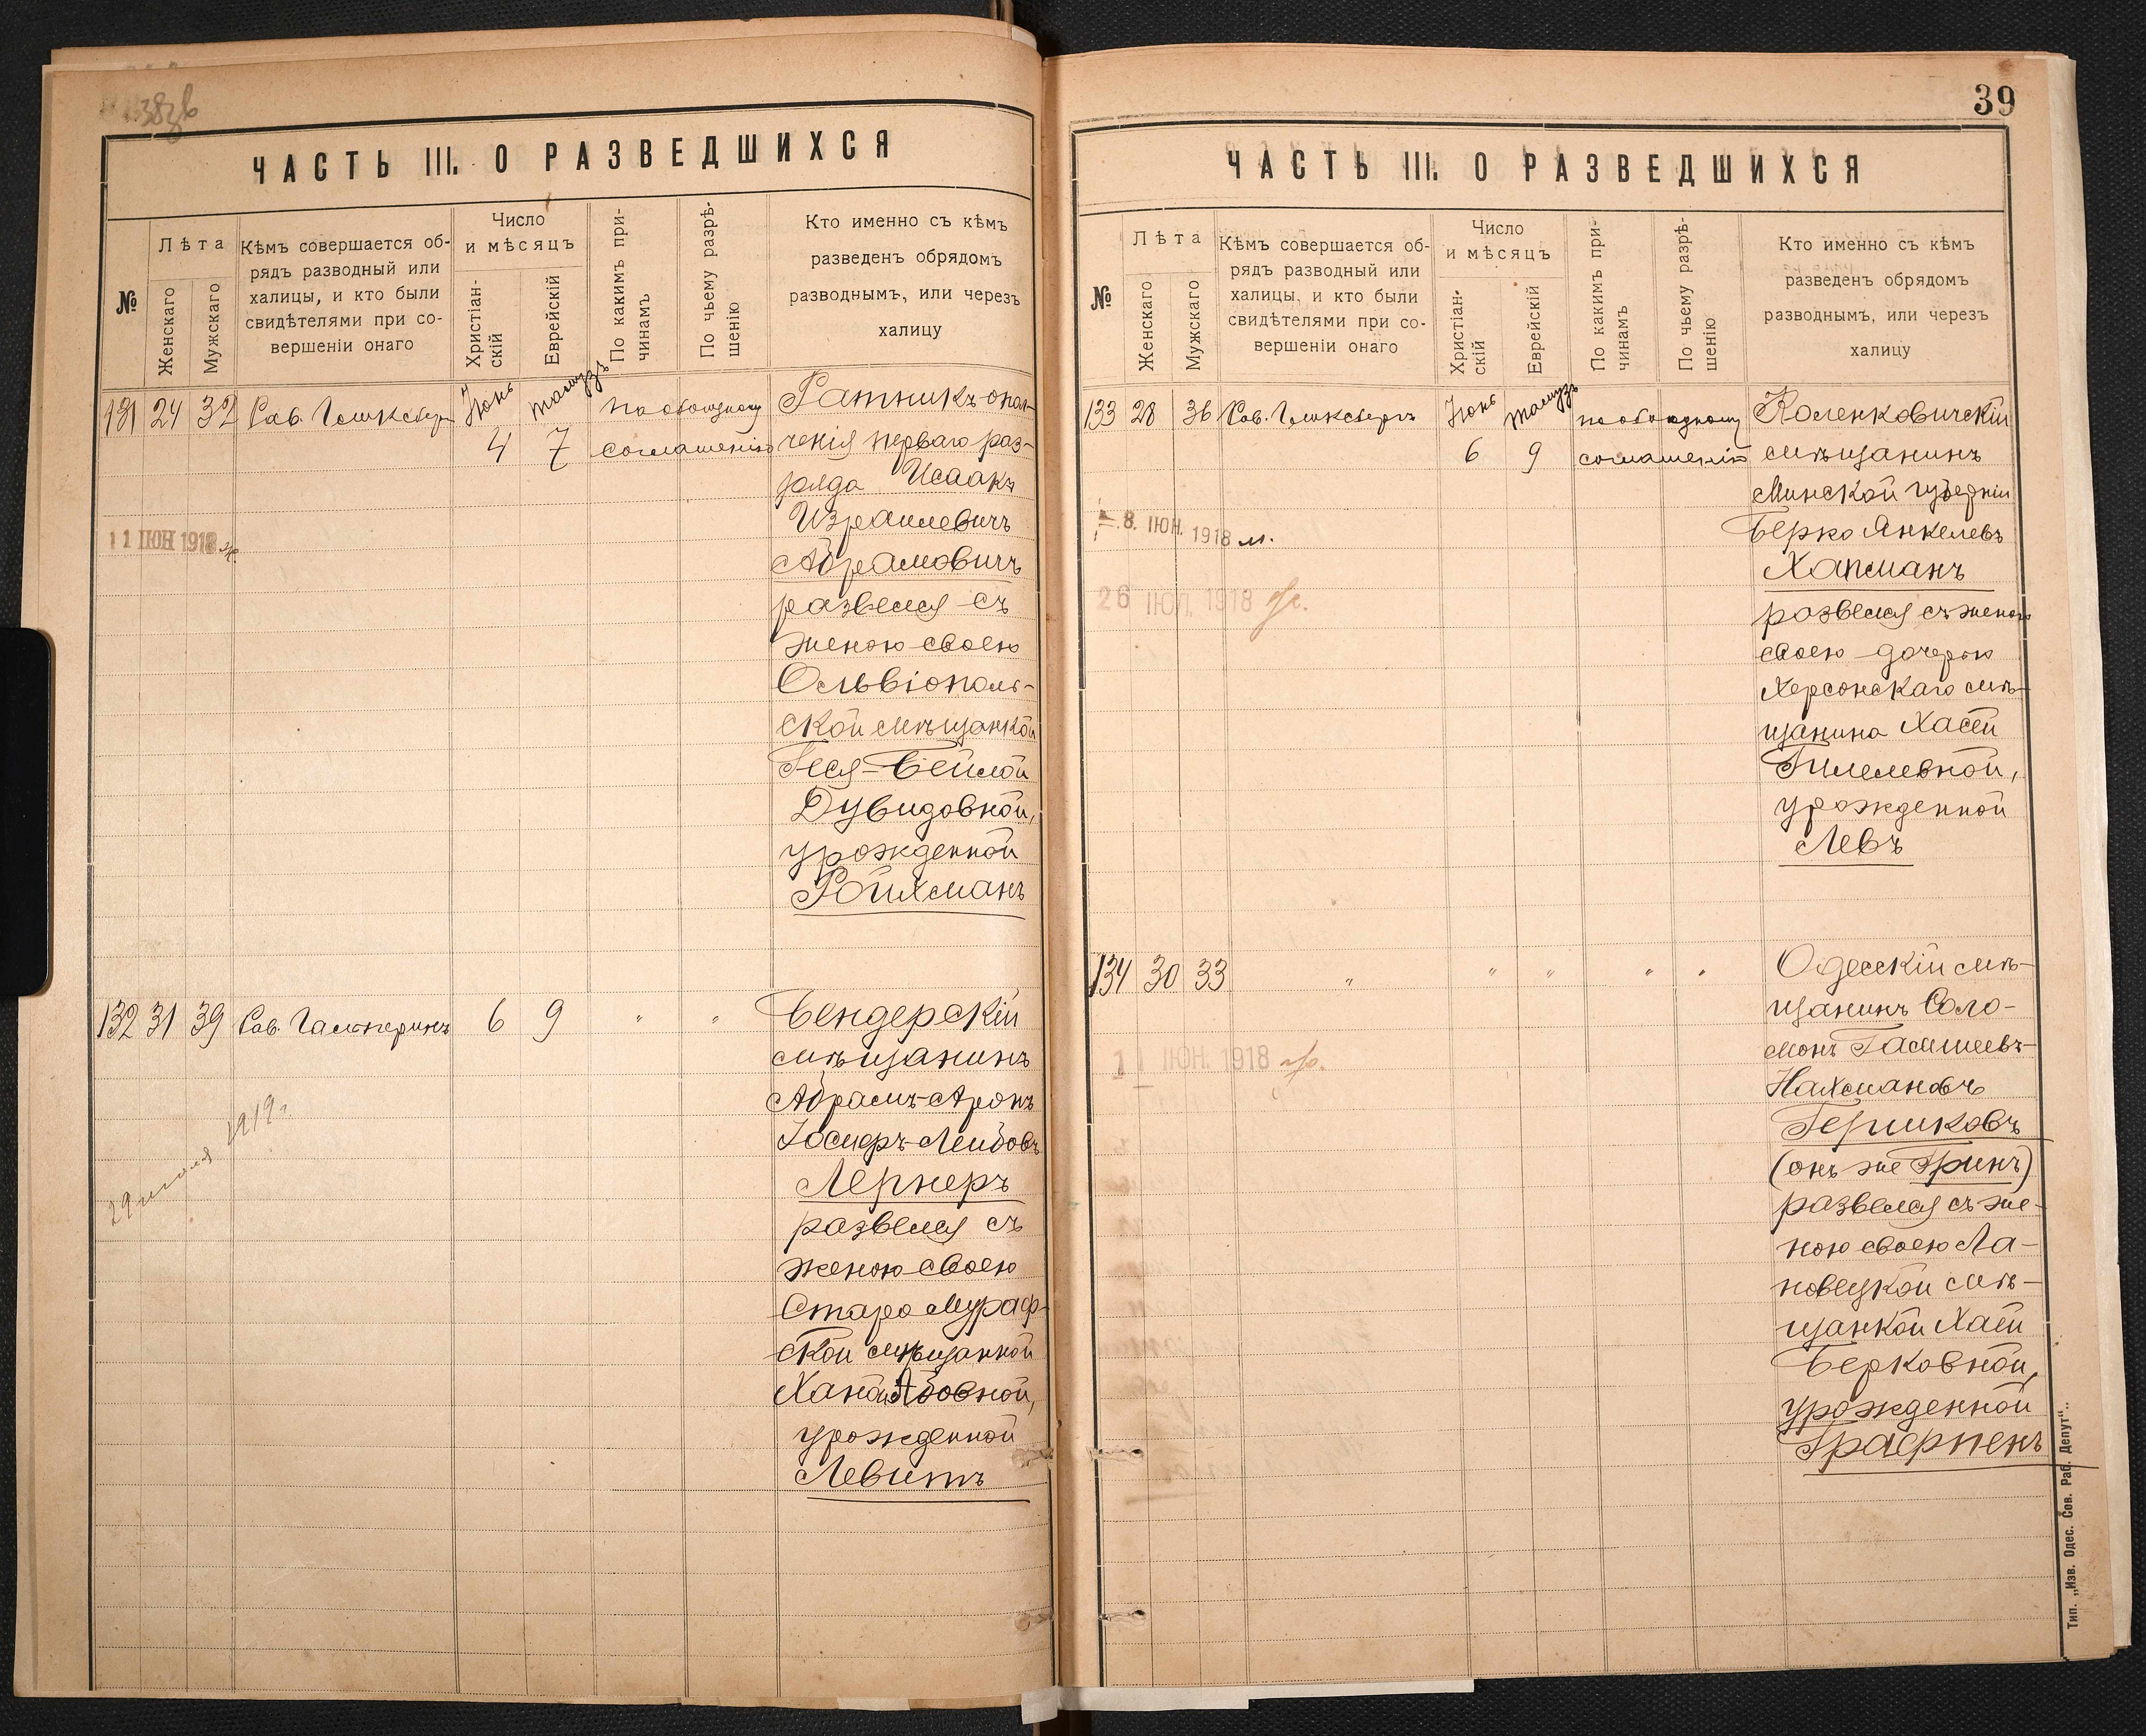 ЧАСТЬ III. О РАЗВЕДШИХСЯ
№
Лѣта
Женскаго
Мужскаго
Кѣмъ совершается об-
рядъ разводный или
халицы, и кто были
свидѣтелями при со-
вершеніи онаго
Число
и мѣсяцъ
Христіан-
скій
Еврейскій
По какимъ при-
чинамъ
По чьему разрѣ-
шенію
Кто именно съ кѣмъ
разведенъ обрядомъ
разводнымъ, или черезъ
халицу
131 24 32 Рав. Іюнь Тамузъ по обоюдному Ратникъ опол-
4 7 соглашенію ченія перваго раз-
ряда Исаакъ
Израилевичъ
11 ІЮН 1918
Абрамовичъ
развелся съ
женою своею
Ольвіополь-
ской мѣщанкой
Геся-Бейлой
Дувидовной,
урожденной
Ройхманъ
132 31 39 Рав. Гальперинъ 6 9 " " Бендерскій
мѣщанинъ
Абрамъ-Аронъ
Іосифъ-Лейбовъ
29 іюля 1919.
Лернеръ
развелся съ
женою своею
Старо Мураф-
ской мѣщанкой
Ханой Абовной,
урожденной
Левитъ
39
ЧАСТЬ III. О РАЗВЕДШИХСЯ
№
Лѣта
Женскаго
Мужскаго
Кѣмъ совершается об-
рядъ разводный или
халицы, и кто были
свидѣтелями при со-
вершеніи онаго
Число
и мѣсяцъ
Христіан-
скій
Еврейскій
По какимъ при-
чинамъ
По чьему разрѣ-
шенію
Кто именно съ кѣмъ
разведенъ обрядомъ
разводнымъ, или черезъ
халицу
133 28 36 Рав. Іюнь Тамузъ по обоюдному Коленковичскій
6 9 соглашенію мѣщанинъ
Минской губерніи
8. ІЮН. 1918 м.
Берко Янкелевъ
Хапманъ
26 ІЮЛ. 1918
развелся съ женою
своею дочерью
Херсонскаго мѣ-
щанина Хасей
Гилелевной,
урожденной
Левъ
134 30 33 " " " " " Одесскій мѣ-
щанинъ Соло-
монъ
Нахмановъ
1 ІЮН. 1918
Гершковъ
(онъ же Гринъ)
развелся съ же-
ною своею Ла-
новецкой мѣ-
щанкой Хаей
Берковной,
урожденной
Тип. „Изв. Одес. Сов. Раб. Депут“.